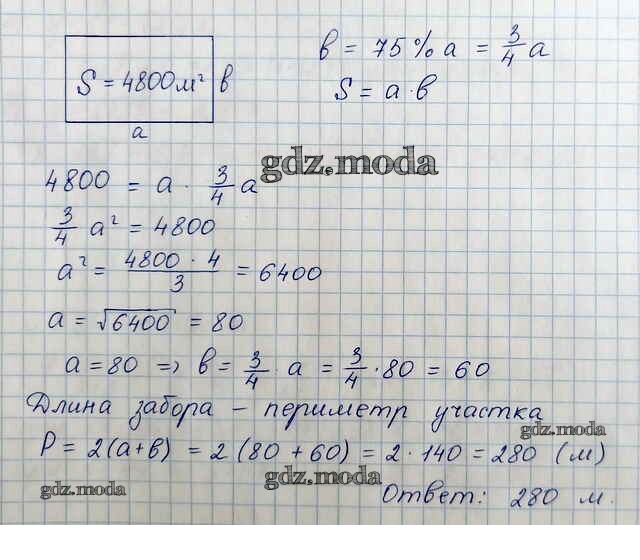 S = 4800м² в
а
в = 75% а = 3/4 а
S = а · в
gdz.moda
4800 = а · 3/4 а
3/4 а² = 4800
а² = 4800 · 4 / 3 = 6400
а = √6400 = 80
а = 80 => в = 3/4 а = 3/4 · 80 = 60
Длина забора – периметр участка
gdz.moda
P = 2(а+в) = 2 (80 + 60) = 2 · 140 = 280 (м)
gdz.moda
gdz.moda
Ответ: 280 м.